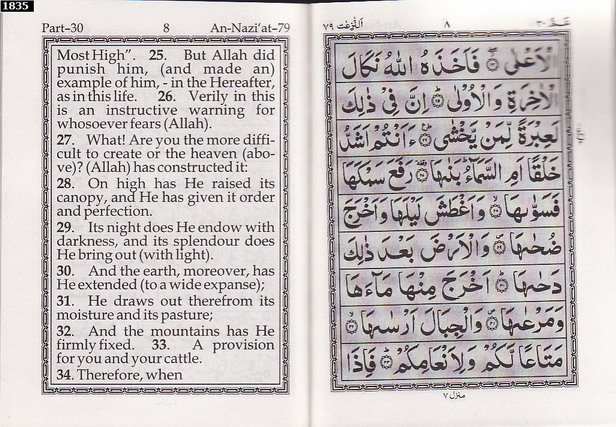 1835
Part–30 8 An-Nazi'at–79
Most High". 25. But Allah did
punish him, (and made an)
example of him, - in the Hereafter,
as in this life. 26. Verily in this
is an instructive warning for
whosoever fears (Allah).
27. What! Are you the more diffi-
cult to create or the heaven (abo-
ve)? (Allah) has constructed it:
28. On high has He raised its
canopy, and He has given it order
and perfection.
29. Its night does He endow with
darkness, and its splendour does
He bring out (with light).
30. And the earth, moreover, has
He extended (to a wide expanse);
31. He draws out therefrom its
moisture and its pasture;
32. And the mountains has He
firmly fixed. 33. A provision
for you and your cattle.
34. Therefore, when
النّٰزعٰت ٧٩ ٨ عـمّ ٣٠
الْاَعْلٰى ۝ فَاَخَذَهُ اللّٰهُ نَكَالَ
الْاٰخِرَةِ وَالْاُوْلٰى ۝ اِنَّ فِىْ ذٰلِكَ
لَعِبْرَةً لِّمَنْ يَّخْشٰى ۝ ءَاَنْتُمْ اَشَدُّ
خَلْقًا اَمِ السَّمَآءُ بَنٰىهَا ۝ رَفَعَ سَمْكَهَا
فَسَوّٰىهَا ۝ وَاَغْطَشَ لَيْلَهَا وَاَخْرَجَ
ضُحٰىهَا ۝ وَالْاَرْضَ بَعْدَ ذٰلِكَ
دَحٰىهَا ۝ اَخْرَجَ مِنْهَا مَآءَهَا
وَمَرْعٰىهَا ۝ وَالْجِبَالَ اَرْسٰىهَا ۝
مَتَاعًا لَّكُمْ وَلِاَنْعَامِكُمْ ۝ فَاِذَا
منزل ٧